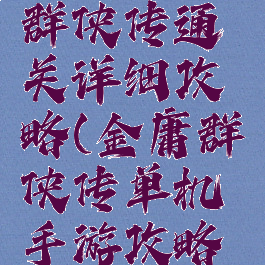 群侠传通
关详细攻
略(金庸群
侠传单机
手游攻略